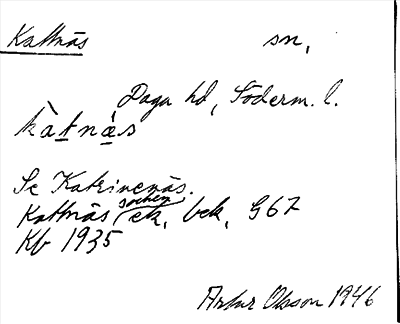 Kattnäs sn,
Daga hd, Söderm. l.
kàtnás
Se Katrinenäs.
Kattnäs socken ek, bek, G67
Kb 1935
Artur Olsson 1946